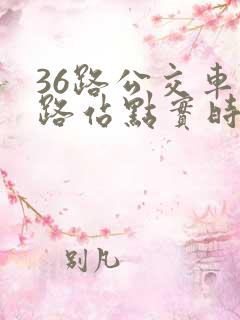 36路公交車
路佔點實時
别凡